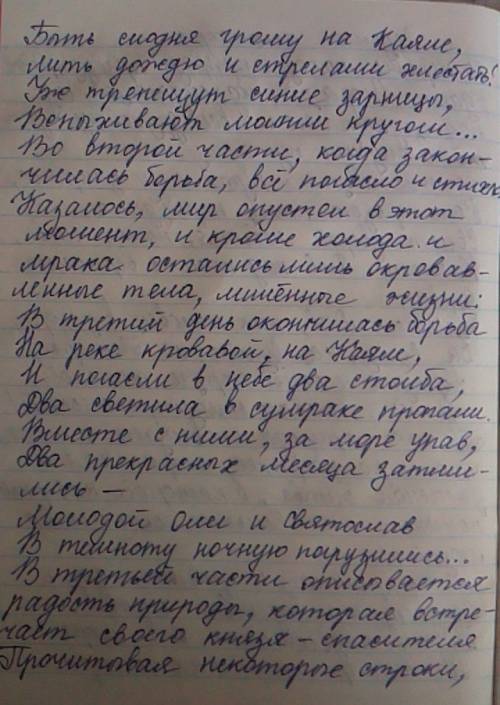 Быть сиодня грому на Каяле,
лить дождю и стрелами хлестать!
Уж трепещут синие зарницы,
Вспыхивают молнии кругом...
Во второй части, когда закон-
чилась борьба, всё погасло и стихло
Казалось, мир опустел в этот
момент, и кроме холода и
мрака остались лишь окровав-
ленные тела, лишённые жизни:
В третий день окончилась борьба
На реке кровавой, на Каяле,
И погасли в небе два столба,
Два светила в сумраке пропали.
Вместе с ними, за море упав,
Два прекрасных месяца затми-
лись —
Молодой Олег и Святослав
В темноту ночную погрузились...
В третьей части описывается
радость природы, которая встре-
чает своего князя - спасителя
Прочитывая некоторые строки,